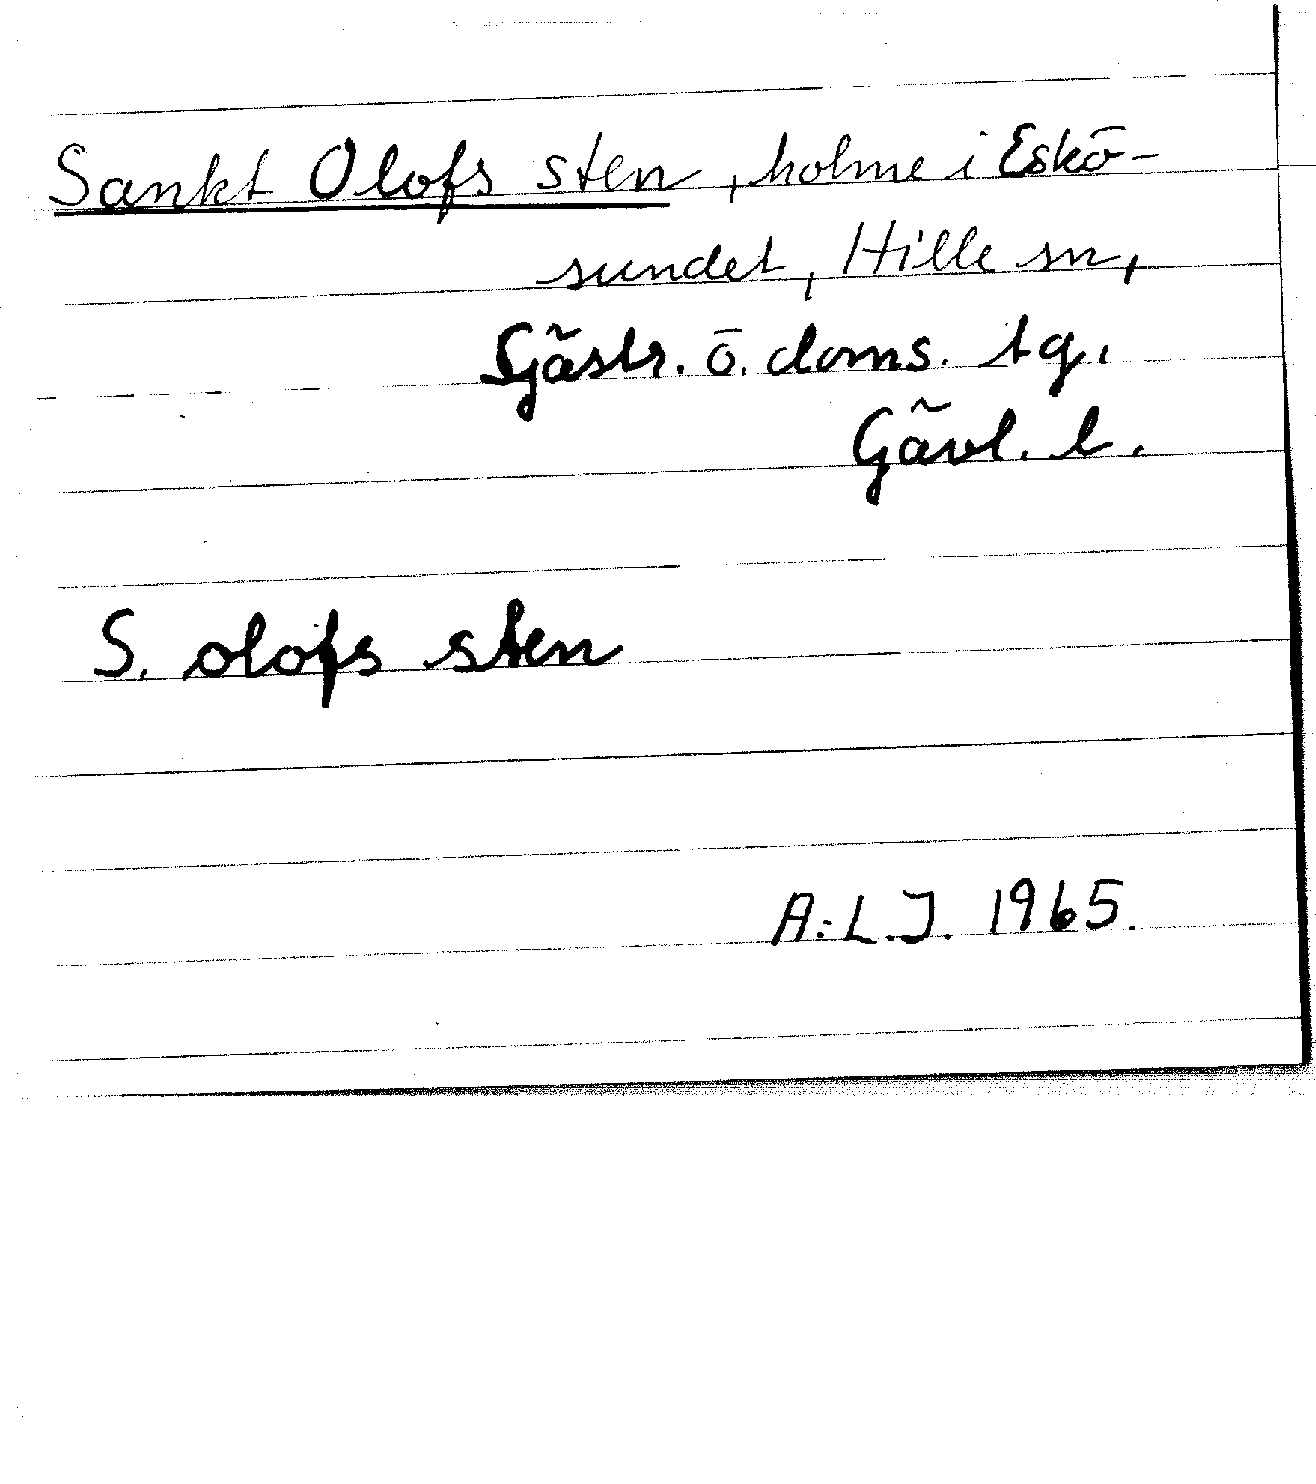 Sankt Olofs sten, holme i Eskö-
sundet, Hille sn,
Gästr. ö. doms. tg.
Gävl. l.
S. olofs sten
A:L.J. 1965.